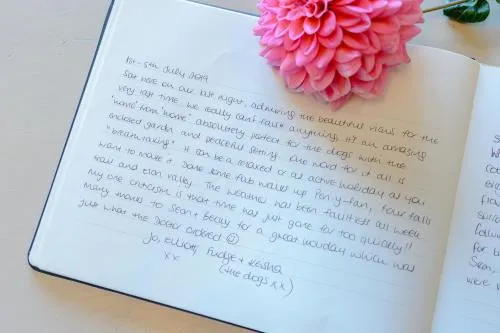 1st - 5th July 2019
Sat here on our last night, admiring the beautiful views for the
very last time. We really can't fault anything, it's an amazing
"home from home" absolutely perfect for the dogs with the
enclosed garden and peaceful setting. One word for it all is
"breathtaking". It can be a relaxed or as active holiday as you
want to make it. Done some fab walks up Pen-y-fan, four falls
trail and elan valley. The weather has been faultless all week
my one criticism is that time has just gone far too quickly!!
Many thanks to Sean + Becky for a great holiday which was
just what the doctor ordered ☺
Jo, Elliott, Fudge + Keisha
xx (the dogs xx)